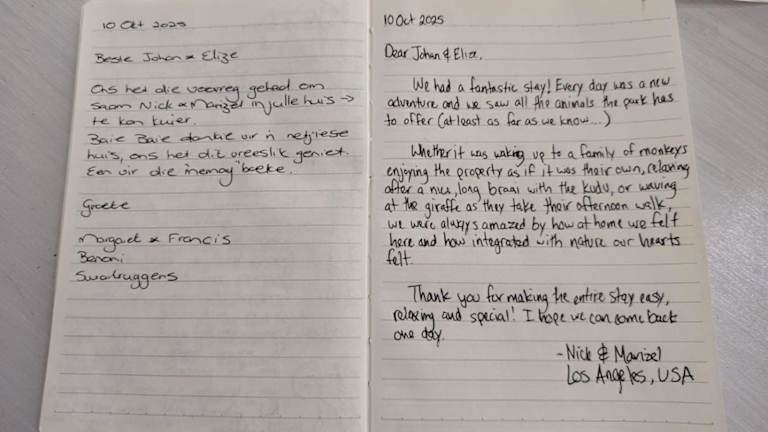 10 Okt 2025
Beste Johan & Elize
Ons het die voorreg gehad om
saam Nick & Marizel in julle huis →
te kon kuier.
Baie Baie dankie vir 'n netjiese
huis, ons het dit vreeslik geniet.
Een vir die "memory" boeke.
Groete
Margaret & Francis
Benoni
Swartruggens
10 Oct 2025
Dear Johan & Elize,
We had a fantastic stay! Every day was a new
adventure and we saw all the animals the park has
to offer (at least as far as we know...)
Whether it was waking up to a family of monkeys
enjoying the property as if it was their own, relaxing
after a nice, long braai with the kudu, or waving
at the giraffe as they take their afternoon walk,
we were always amazed by how at home we felt
here and how integrated with nature our hearts
felt.
Thank you for making the entire stay easy,
relaxing and special! I hope we can come back
one day.
- Nick & Marizel
Los Angeles, USA